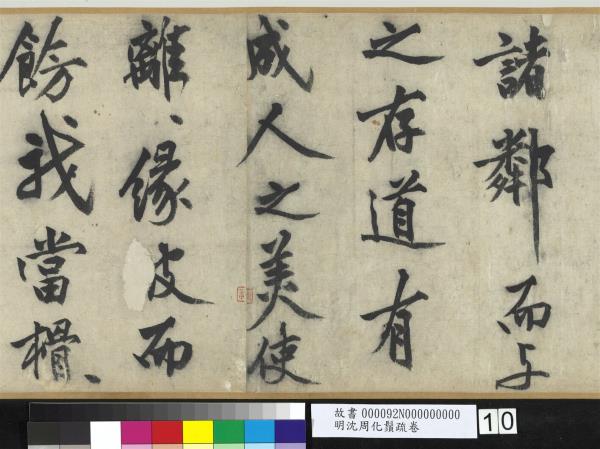 諸鄰而与
之存道有
成人之美使
離〻緣皮而
餝我當榾〻
故書 000092N000000000
明沈周化鬚疏卷
10